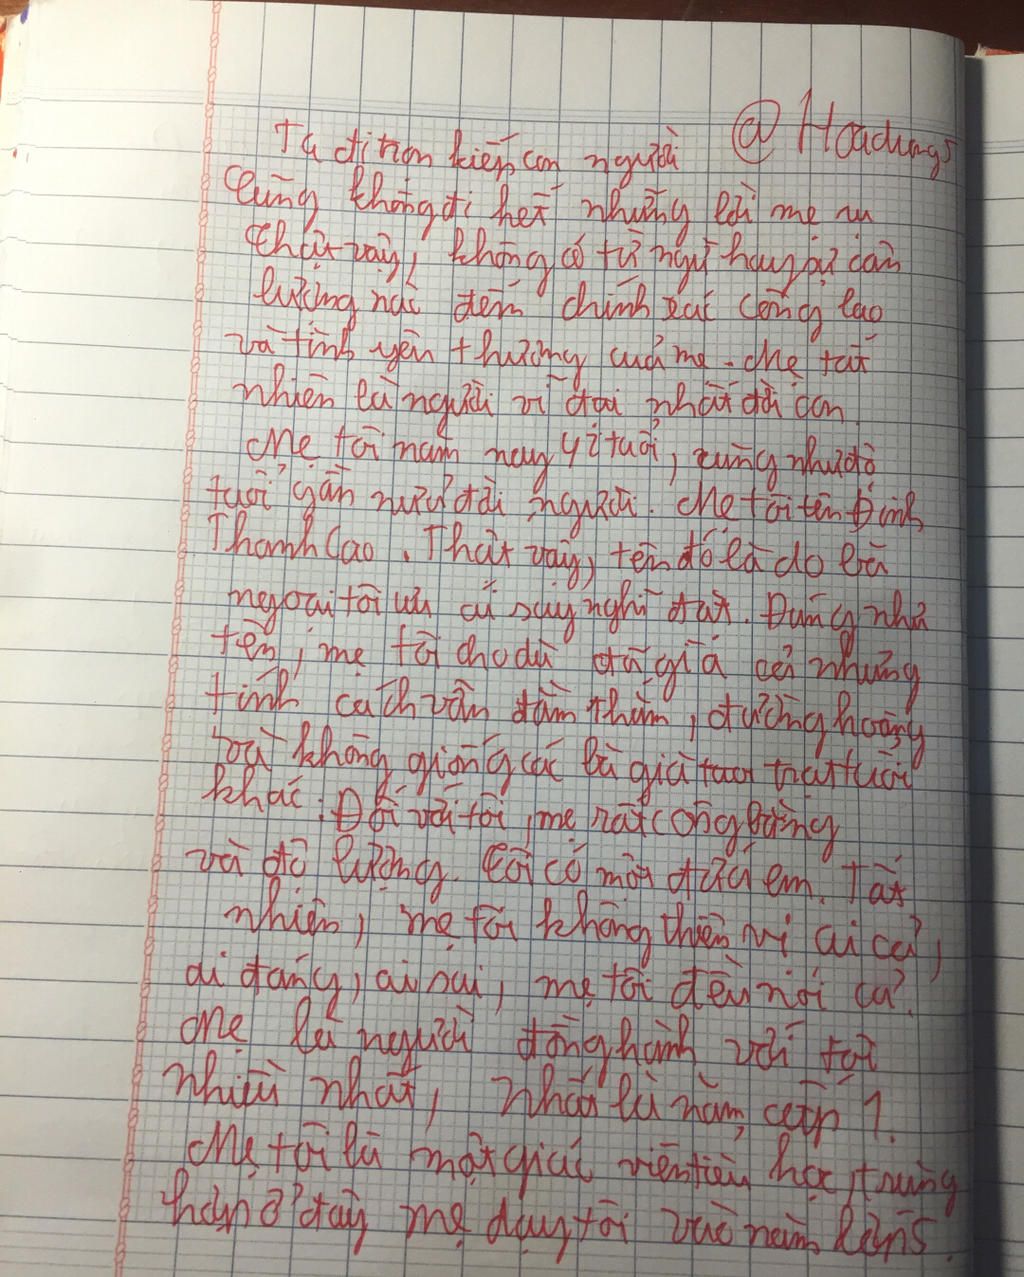 @ Hoadung5
Ta đi trọn kiếp con người
Cũng không đi hết những lời mẹ ru
Thật vậy, không có từ ngữ hay sự cân
lường nào đếm chính xác công lao
và tình yêu thương của mẹ. Mẹ tất
nhiên là người vĩ đại nhất đời con.
Mẹ tôi năm nay 42 tuổi, cũng như độ
tuổi gần nửa đời người. Mẹ tôi tên Đinh
Thanh Cao. Thật vậy, tên đó là do bà
ngoại tôi suy nghĩ đặt. Đúng như
tên, mẹ tôi cho dù đã già cả nhưng
tính cách vẫn đằm thắm, đường hoàng
và không giống các bà già trạt tuổi
khác. Đối với tôi, mẹ rất công bằng
và độ lượng. Tôi có một đứa em. Tất
nhiên, mẹ tôi không thiên vị ai cả,
ai đúng, ai sai, mẹ tôi đều nói cả.
Mẹ là người đồng hành với tôi
nhiều nhất, nhất là năm cấp 1.
Mẹ tôi là một giáo viên tiểu học, trùng
hợp ở đây mẹ dạy tôi vào năm lớp 5.